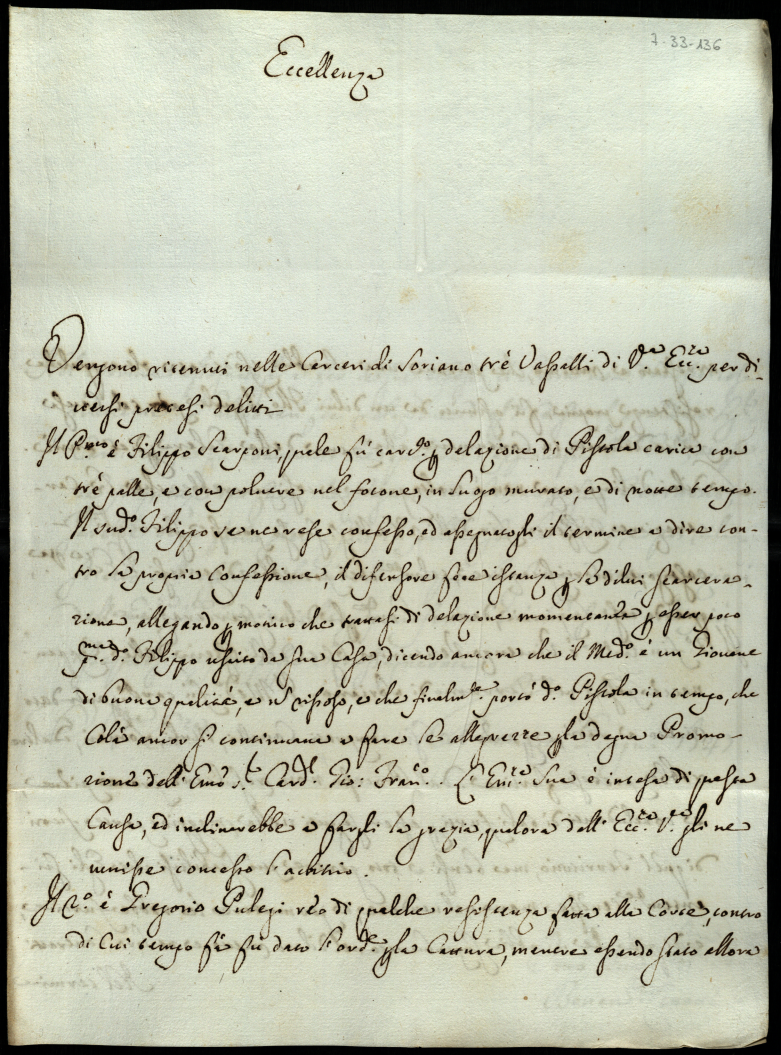 7-33-136
Eccellenza
Vengono ritenuti nelle Carceri di Soriano trè Vassalli di V.a Ecc.za per di-
versi pretesi delitti
Il P.mo è Filippo Scarponi, quale fù carc.o p delazione di Pistola carica con
trè palle, e con poluere nel focone, in luogo murato, e di notte tempo.
Il sud.o Filippo se ne rese confesso, ed assegnatogli il termine a dire con-
tro la propria Confessione, il difensore fece istanza p la di lui scarcera-
zione, allegando p motivo che trattasi di delazione momentanea p esser poco
p.ma d.o Filippo uscito da sua Casa, dicendo ancora che il Med.o è un Giovane
di buone qualità, e n rissoso, e che finalm.te portò d.a Pistola in tempo, che
Colà ancor si continuava a fare le allegrezze p la degna Promo-
zione dell' Emo S.r Card.l Gio: Fran.co. L' Em.za Sua è intesa di questa
Causa, ed inclinerebbe a fargli la grazia, qualora dell' Ecc.za V.a gli ne
venisse concesso l'arbitrio.
Il 2.o è Gregorio Pulegi reo di qualche resistenza fatta alla Corte, contro
di Cui tempo fà fù dato l'ord.e p la Cattura, mentre essendo stato allora